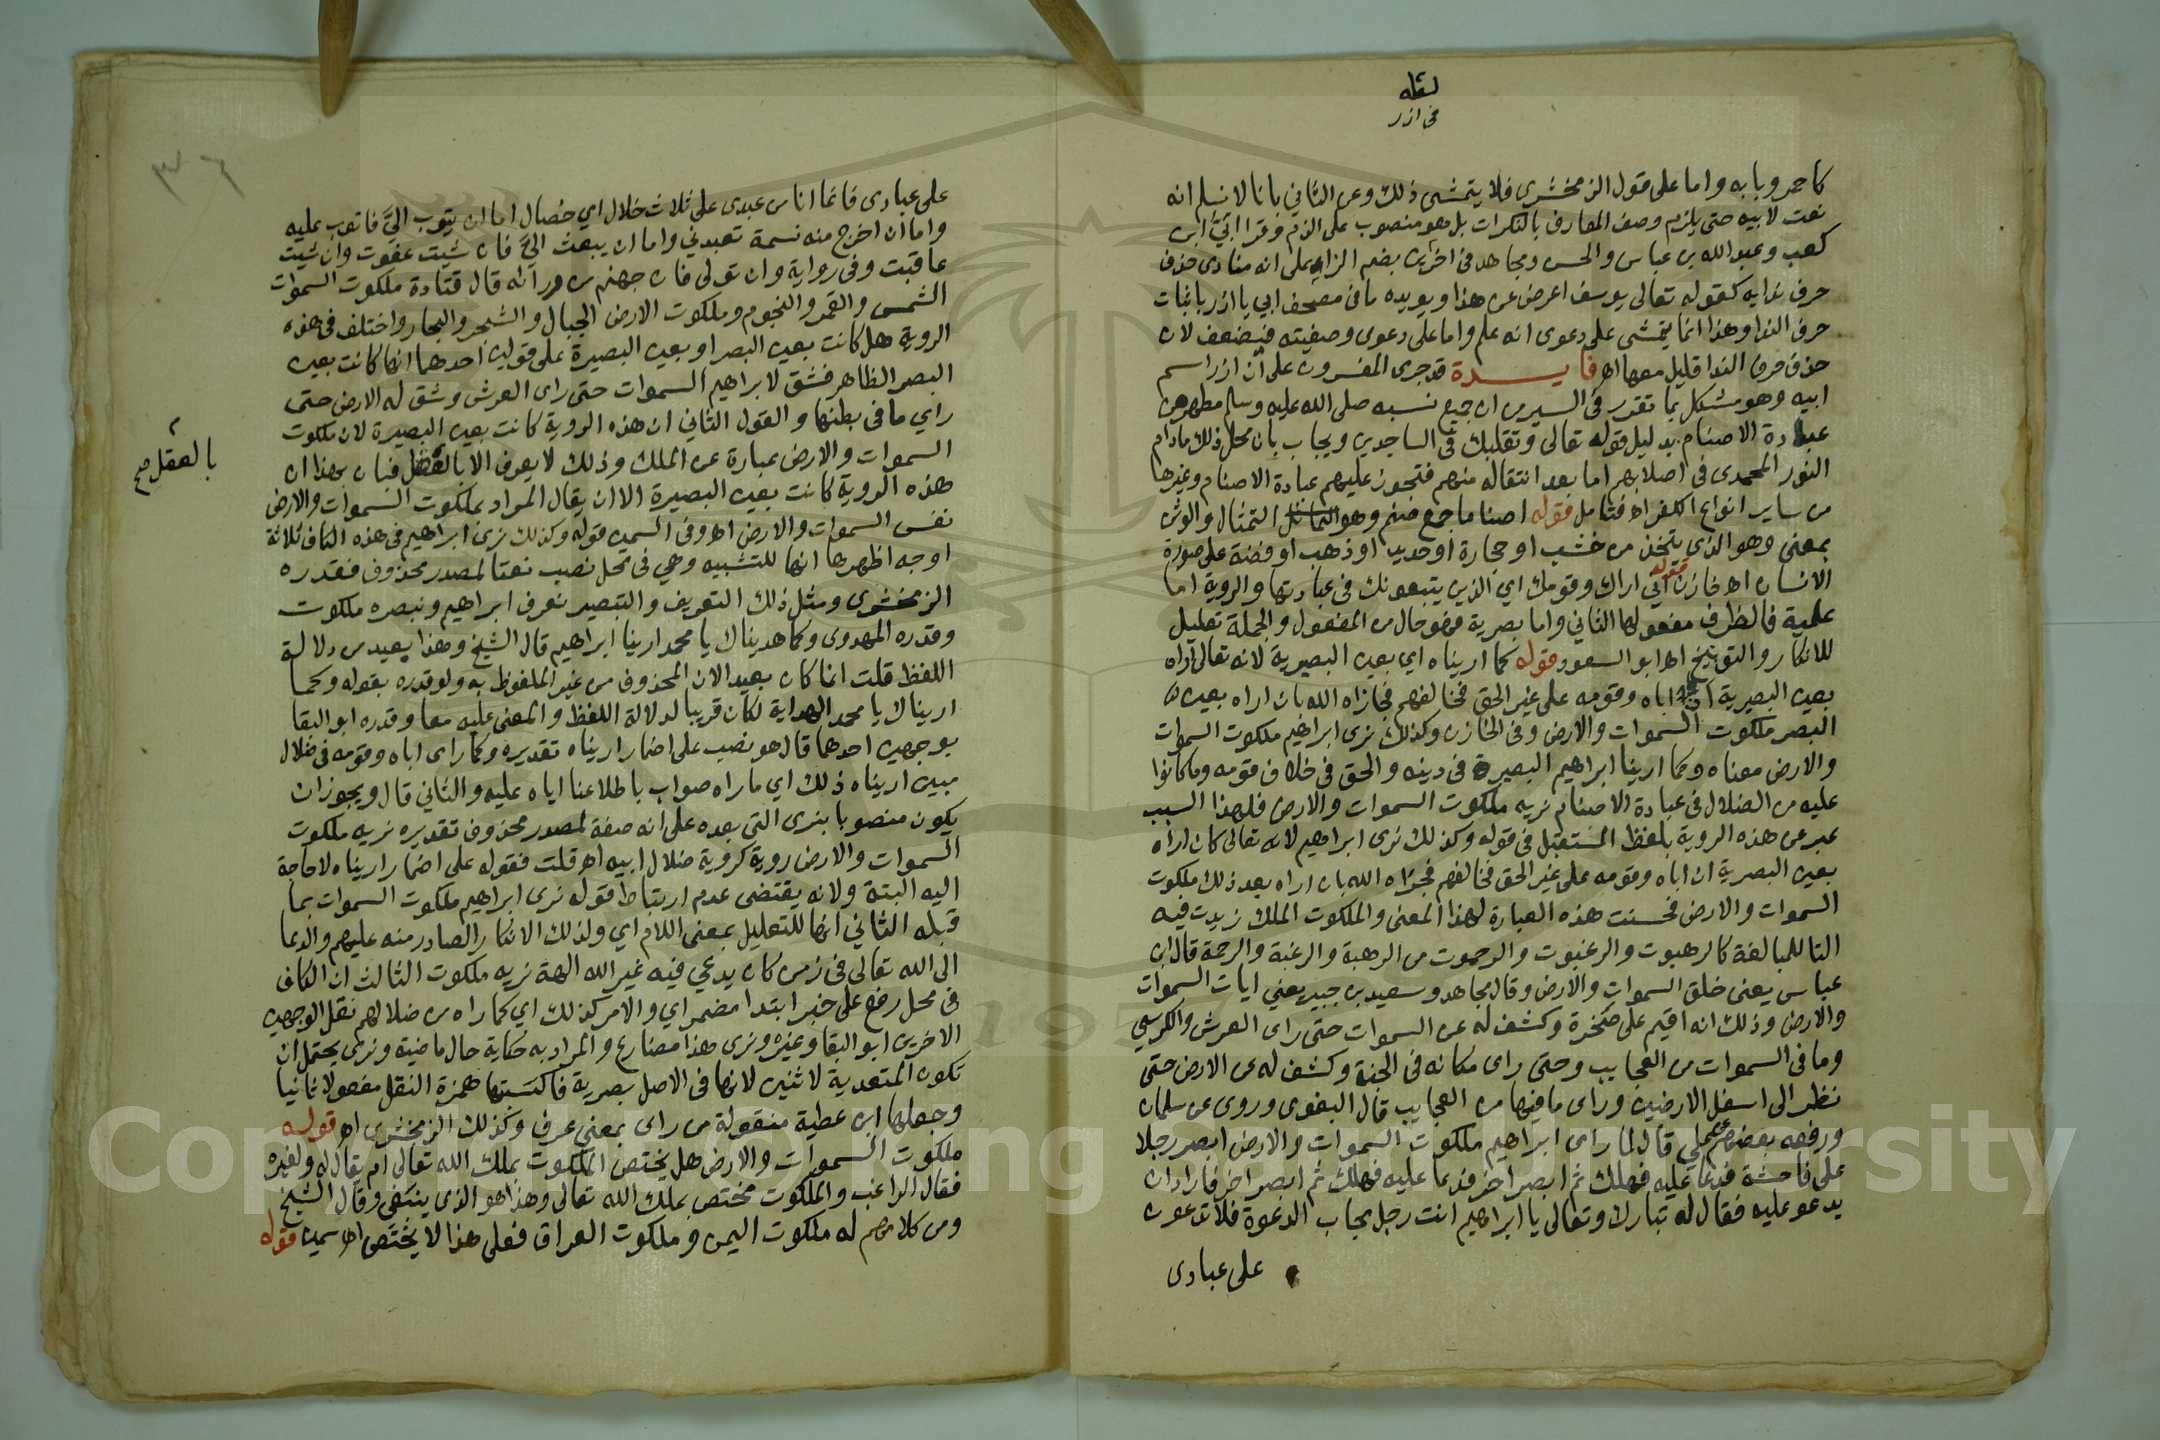 لسله
في ازر
كاحمر وبابه واما على قول الزمخشري فلا يتمشى ذلك وعن الثاني بانا لا نسلم انه
نعت لابيه حتى يلزم وصف المعارف بالنكرات بل هو منصوب على الذم وقرا ابيّ ابن
كعب وعبد الله بن عباس والحسن ومجاهد في اخرين بضم الراء على انه منادى حذف
حرف ندايه كقوله تعالى يوسف اعرض عن هذا ويويده ما في مصحف ابي يا ازر باثبات
حرف الندا وهذا انما يتمشى على دعوى انه علم واما على دعوى وصفيته فيضعف لان
حذف حرف الندا قليل معها اه فايـــدة قد جرى المفسرون على أن ازر اسم
ابيه وهو مشكل بما تقدر في السير من ان جميع نسبه صلى الله عليه وسلم مطهر من
عبادة الاصنام بدليل قوله تعالى وتقلبك في الساجدين ويجاب بان محل ذلك مادام
النور المحمدي في اصلابهم اما بعد انتقاله منهم فتجوز عليهم عبادة الاصنام وغيرها
من ساير انواع الكفر اه فتامل قوله اصناما جمع صنم وهو التماثل التمثال والوثن
بمعنى وهو الذي يتخذ من خشب او حجارة او حديد او ذهب او فضة على صورة
الانسان اه خازن قوله اني اراك وقومك اي الذين يتبعونك في عبادتها والروية اما
علمية فالظرف مفعولها الثاني واما بصرية فهو حال من المفعول والجملة تعليل
للانكار والتوبيخ اه ابو السعود قوله كما اريناه اي بعين البصيرية لانه تعالى أراه
بعين البصيرية ان اباه وقومه على غير الحق فخالفهم فجازاه الله بان اراه بعين
البصر ملكوت السموات والارض وفي الخازن وكذلك نرى ابراهيم ملكوت السموات
والارض معناه وكما ارينا ابراهيم البصيرة في دينه والحق في خلاف قومه وما كانوا
عليه من الضلال في عبادة الاصنام نريه ملكوت السموات والارض فلهذا السبب
عبر عن هذه الروية بلفظ المستقبل في قوله وكذلك نرى ابراهيم لانه تعالى كان اراه
بعين البصرية ان اباه وقومه على غير الحق فخالفهم فجزاه الله بان اراه بعد ذلك ملكوت
السموات والارض فحسنت هذه العبارة لهذا المعنى والملكوت الملك زيدت فيه
التا للمبالغة كالرهبوت والرغبوت والرحموت من الرهبة والرغبة والرحمة قال ابن
عباس يعنى خلق السموات والارض وقال مجاهد وسعيد بن جبير يعني ايات السموات
والارض وذلك انه اقيم على صخرة وكشف له عن السموات حتى راى العرش والكرسي
وما في السموات من العجايب وحتى راى مكانه في الجنة وكشف له عن الارض حتى
نظر الى اسفل الارضين وراى ما فيها من العجايب قال البغوي وروى عن سلمان
ورفعه بعضهم عن علي قال لما راى ابراهيم ملكوت السموات والارض ابصر رجلا
على فاحشة فدعا عليه فهلك ثم ابصر اخر فدعا عليه فهلك ثم ابصر اخر فاراد ان
يدعو عليه فقال له تبارك وتعالى يا ابراهيم انت رجل مجاب الدعوة فلا تدعون
على عبادى
٣٦
على عبادى فانما انا من عبدى على ثلاث خلال اي خصال اما ان يتوب اليّ فاتوب عليه
واما ان اخرج منه نسمة تعبدني واما ان يبعث اليّ فان شيت عفوت وان شيت
عاقبت وفي رواية وان تولى فان جهنم من ورائه قال قتادة ملكوت السموات
الشمس والقمر والنجوم وملكوت الارض الجبال والشجر والبحار واختلف في هذه
الروية هل كانت بعين البصر او بعين البصيرة على قولين احدهما انها كانت بعين
البصر الظاهر فشق لابراهيم السموات حتى راى العرش وشق له الارض حتى
راي ما في بطنها والقول الثاني ان هذه الروية كانت بعين البصيرة لان ملكوت
السموات والارض عبارة عن الملك وذلك لا يعرف الا بالعقل فبان بهذا ان
بالعقل صح
هذه الروية كانت بعين البصيرة الا ان يقال المراد بملكوت السموات والارض
نفس السموات والارض اه وفي السمين قوله وكذلك نرى ابراهيم في هذه الكاف ثلاثة
اوجه اظهرها انها للتشبيه وهي في محل نصب نعتا لمصدر محذوف فقدره
الزمخشري ومثل ذلك التعريف والتبصير نعرف ابراهيم ونبصره ملكوت
وقدره المهدوى وكما هديناك يا محمد ارينا ابراهيم قال الشيخ وهذا بعيد من دلالة
اللفظ قلت انما كان بعيد الان المحذوف من غير الملفوظ به ولو قدره بقوله وكما
اريناك يا محمد الهداية لكان قريبا لدلالة اللفظ والمعنى عليه معا وقدره ابو البقا
بوجهين احدهما قال هو نصب على اضمار اريناه تقديره وكما راى اباه وقومه في ضلال
مبين اريناه ذلك اي ما راه صواب باطلاعنا اياه عليه والثاني قال ويجوز ان
يكون منصوبا بنرى التي بعده على انه صفة لمصدر محذوف تقديره نريه ملكوت
السموات والارض روية كروية ضلال ابيه اه قلت فقوله على اضمار اريناه لا حاجة
اليه البتة ولانه يقتضى عدم ارتباط قوله نرى ابراهيم ملكوت السموات بما
قبله الثاني انها للتعليل بمعنى اللام اي ولذلك الانكار الصادر منه عليهم والدعا
الى الله تعالى في زمن كان يدعي فيه غير الله الهة نريه ملكوت الثالث ان الكاف
في محل رفع على خبر ابتدا مضمر اي والامر كذلك اي كما راه من ضلالهم نقل الوجهين
الاخرين ابو البقا وغيره ونرى هذا مضارع والمراد به حكاية حال ماضية ونرى يحتمل ان
تكون المتعدية لاثنين لانها في الاصل بصرية فاكسبتها همزة النقل مفعولا ثانيا
وجعلها ابن عطية منقولة من راى بمعنى عرف وكذلك الزمخشري اه قوله
ملكوت السموات والارض هل يختص الملكوت بملك الله تعالى ام يقال له ولغيره
فقال الراغب والملكوت مختص بملك الله تعالى وهذا هو الذي ينبغي وقال الشيخ
ومن كلامهم له ملكوت اليمن وملكوت العراق فعلى هذا لا يختص اه سمين قوله